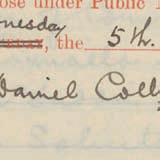 ose under Public
nesday
, the 5th.
Daniel Coll